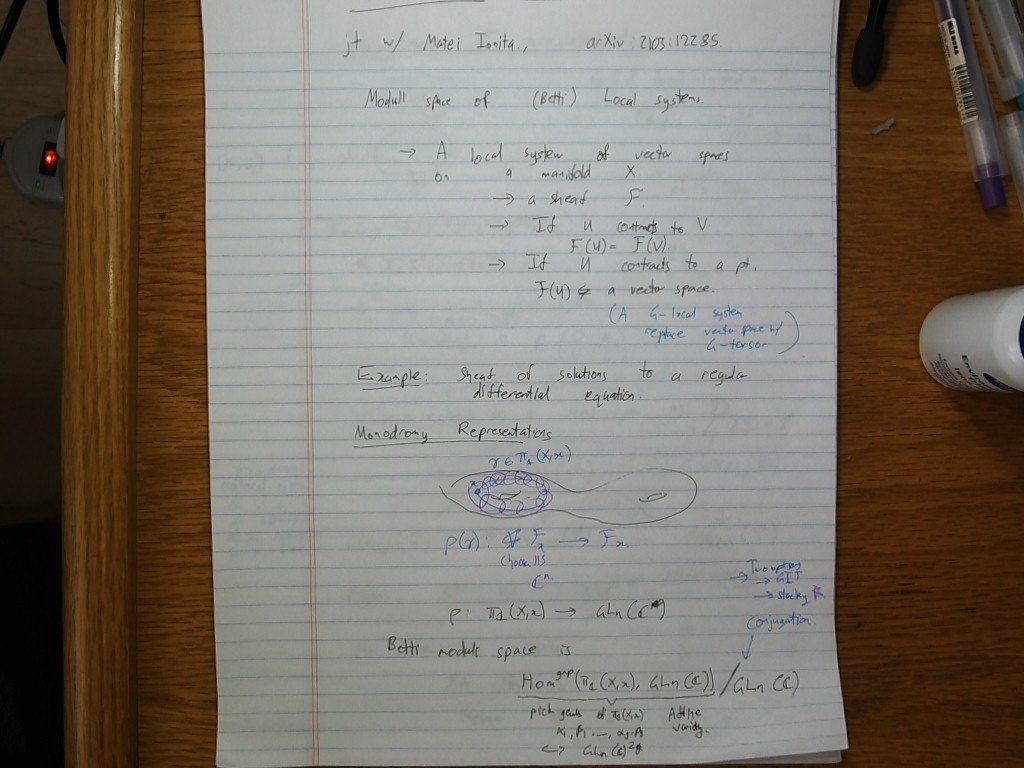 jt w/ Matei Ionita., arXiv: 2103.12285.
Moduli space of (Betti) Local systems.
→ A local system of vector spaces
on a manifold X
→ a sheaf. F.
→ If U contracts to V.
F(U) = F(V)
→ If U contracts to a pt.
F(U) a vector space.
(A G-local system
replace vector space w/
G-torsor)
Example: Sheaf of solutions to a regular
differential equation.
Monodromy Representations
γ ∈ π₁(X,x)
x
ρ(γ): F_x → F_x
Choose
ℂⁿ.
→ Two options
→ GIT
→ stacky *
ρ: π₁(X,x) → GLn(ℂ)
Conjugation.
Betti moduli space is
Hom^grp(π₁(X,x), GLn(ℂ)) / GLn(ℂ)
pick of π₁(X,x) Affine
variety.
GLn(ℂ)